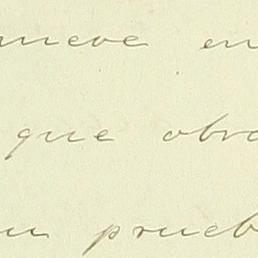 nueve en
que obra
un prueb